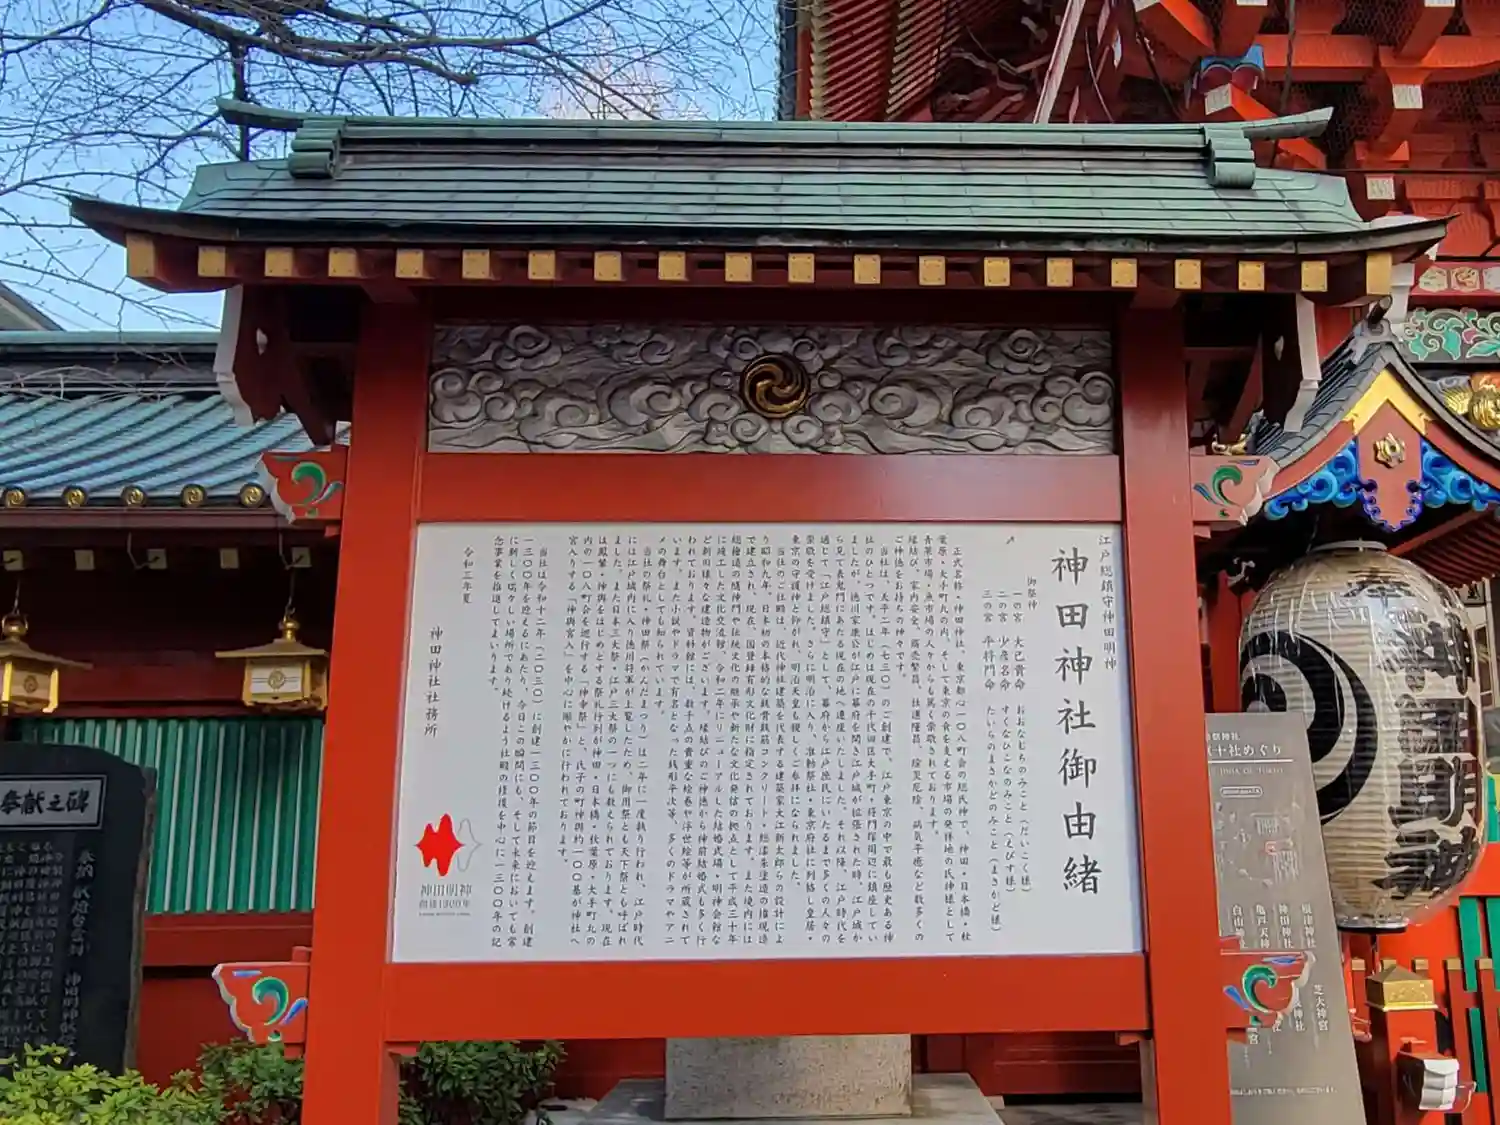 江戸総鎮守神田明神
神田神社御由緒
御祭神
一の宮 大己貴命 おおなむちのみこと(だいこく様)
二の宮 少彦名命 すくなひこなのみこと(えびす様)
三の宮 平将門命 たいらのまさかどのみこと(まさかど様)
正式名称・神田神社。東京都心一〇八町会の総氏神で、神田・日本橋・秋
葉原・大手町丸の内、そして東京の食を支える市場の発祥地の氏神様として
青果市場・魚市場の人々からも篤く崇敬されております。
縁結び、家内安全、商売繁昌、社運隆昌、除災厄除、病気平癒など数多くの
ご神徳をお持ちの神々です。
当社は、天平二年(七三〇)のご創建で、江戸東京の中で最も歴史ある神
社のひとつです。はじめは現在の千代田区大手町・将門塚周辺に鎮座してい
ましたが、徳川家康公が江戸に幕府を開き江戸城が拡張された時、江戸城か
ら見て表鬼門にあたる現在の地へ遷座いたしました。それ以降、江戸時代を
通じて「江戸総鎮守」として、幕府から江戸庶民にいたるまで多くの人々の
崇敬を受けました。さらに明治に入り、准勅祭社・東京府社に列格し皇居・
東京の守護神と仰がれ、明治天皇も親しくご参拝になられました。
当社のご社殿は、近代神社建築を代表する建築家大江新太郎らの設計によ
り昭和九年、日本初の本格的な鉄骨鉄筋コンクリート・総漆朱塗造の権現造
で建立され、現在、国登録有形文化財に指定されております。また境内には
総檜造の隨神門や伝統文化の継承や新たな文化発信の拠点として平成三十年
に竣工した文化交流館、令和二年にリニューアルした結婚式場・明神会館な
ど新旧様々な建造物がございます。縁結びのご神徳から神前結婚式も多く行
われております。資料館には、数千点の貴重な絵巻や浮世絵等が所蔵されて
います。また小説やドラマで有名となった銭形平次等、多くのドラマやアニ
メの舞台としても知られています。
当社の祭礼・神田祭(かんだまつり)は二年に一度執り行われ、江戸時代
には江戸城内に入り徳川将軍が上覧したため、御用祭とも天下祭とも呼ばれ
ました。また日本三大祭・江戸三大祭の一つにも数えられております。現在
は鳳輦・神輿をはじめとする祭礼行列が神田・日本橋・秋葉原・大手町丸の
内の一〇八町会を巡行する「神幸祭」と、氏子の町神輿約一〇〇基が神社へ
宮入りする「神輿宮入」を中心に賑やかに行われております。
当社は令和十二年(二〇三〇)に創建一三〇〇年の節目を迎えます。創建
一三〇〇年を迎えるにあたり、今日この瞬間にも、そして未来においても常
に新しく瑞々しい場所であり続けるよう社殿の修復を中心に一三〇〇年の記
念事業を推進してまいります。
令和三年夏
神田神社社務所
神田明神
創建1300年
奉献之碑
神田明神
十社めぐり
根津神社
神田神社
亀戸天神
白山神社
芝大神宮